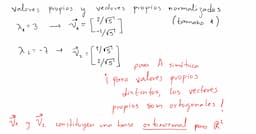 valores propios y vectores propios normalizados
(tamaño 1)
λ₁ = 3 → v⃗₁ = [2/√5 -1/√5]
λ₂ = -7 → v⃗₂ = [1/√5 2/√5]
para A simétrica
¡ para valores propios
distintos, los vectores
propios son ortogonales !
v⃗₁ y v⃗₂ constituyen una base ortonormal para ℝ²